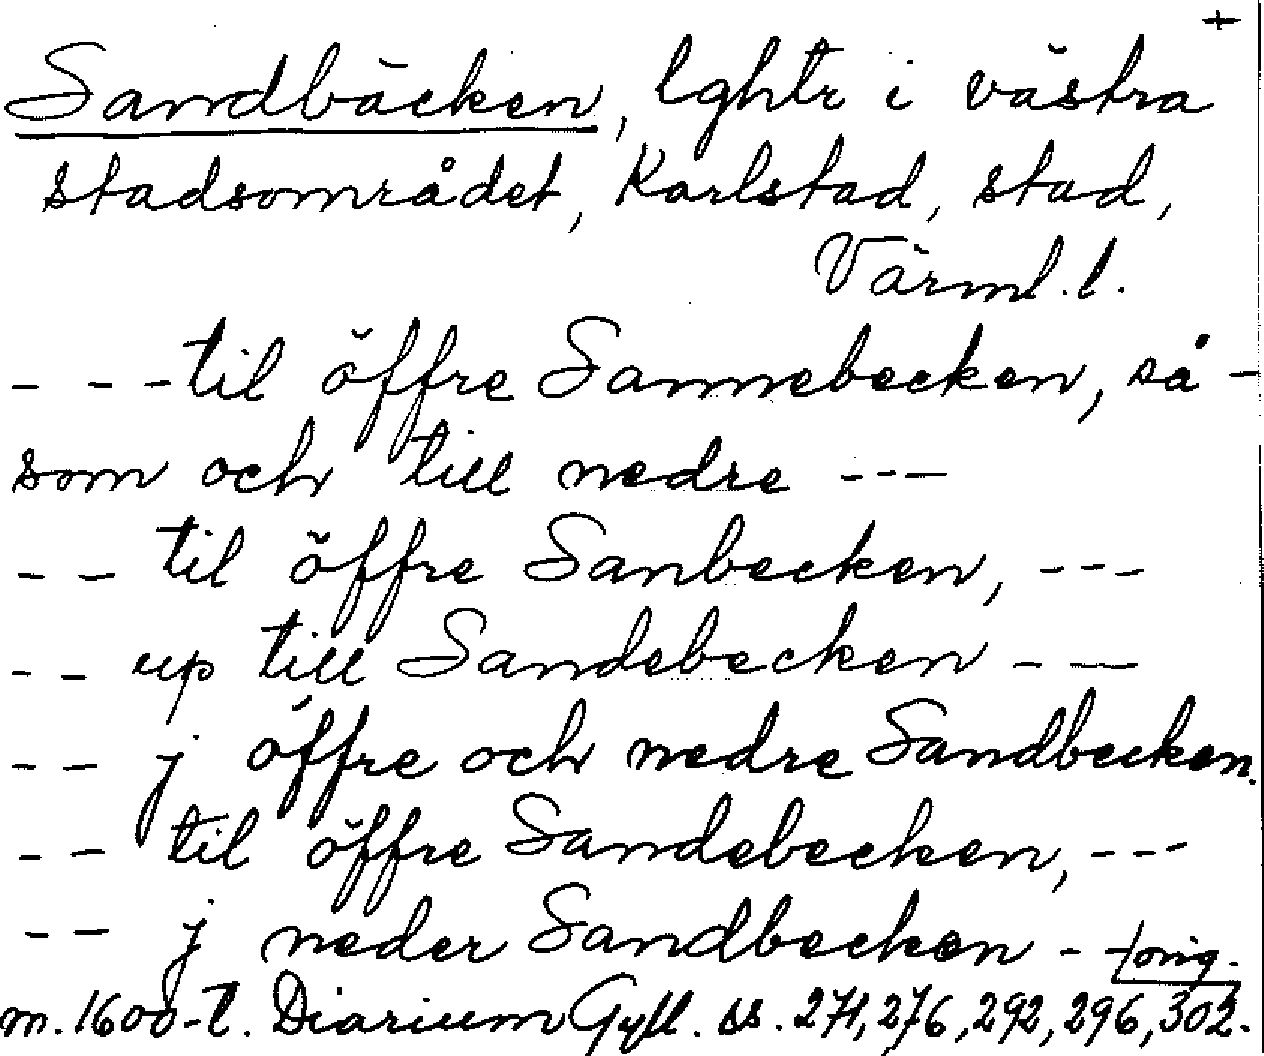 +
Sandbäcken, lghtr i västra
stadsområdet, Karlstad, stad,
Värml. l.
- - - til öffre Sannebecken, så-
som och till nedre - - -
- - til öffre Sanbecken, - - -
- - up till Sandebecken - -
- - j öffre och nedre Sandbecken.
- - til öffre Sandebecken, - - -
- - j neder Sandbecken - - orig.
m. 1600-t. Diarium Gyll. ss. 271, 276, 292, 296, 303.